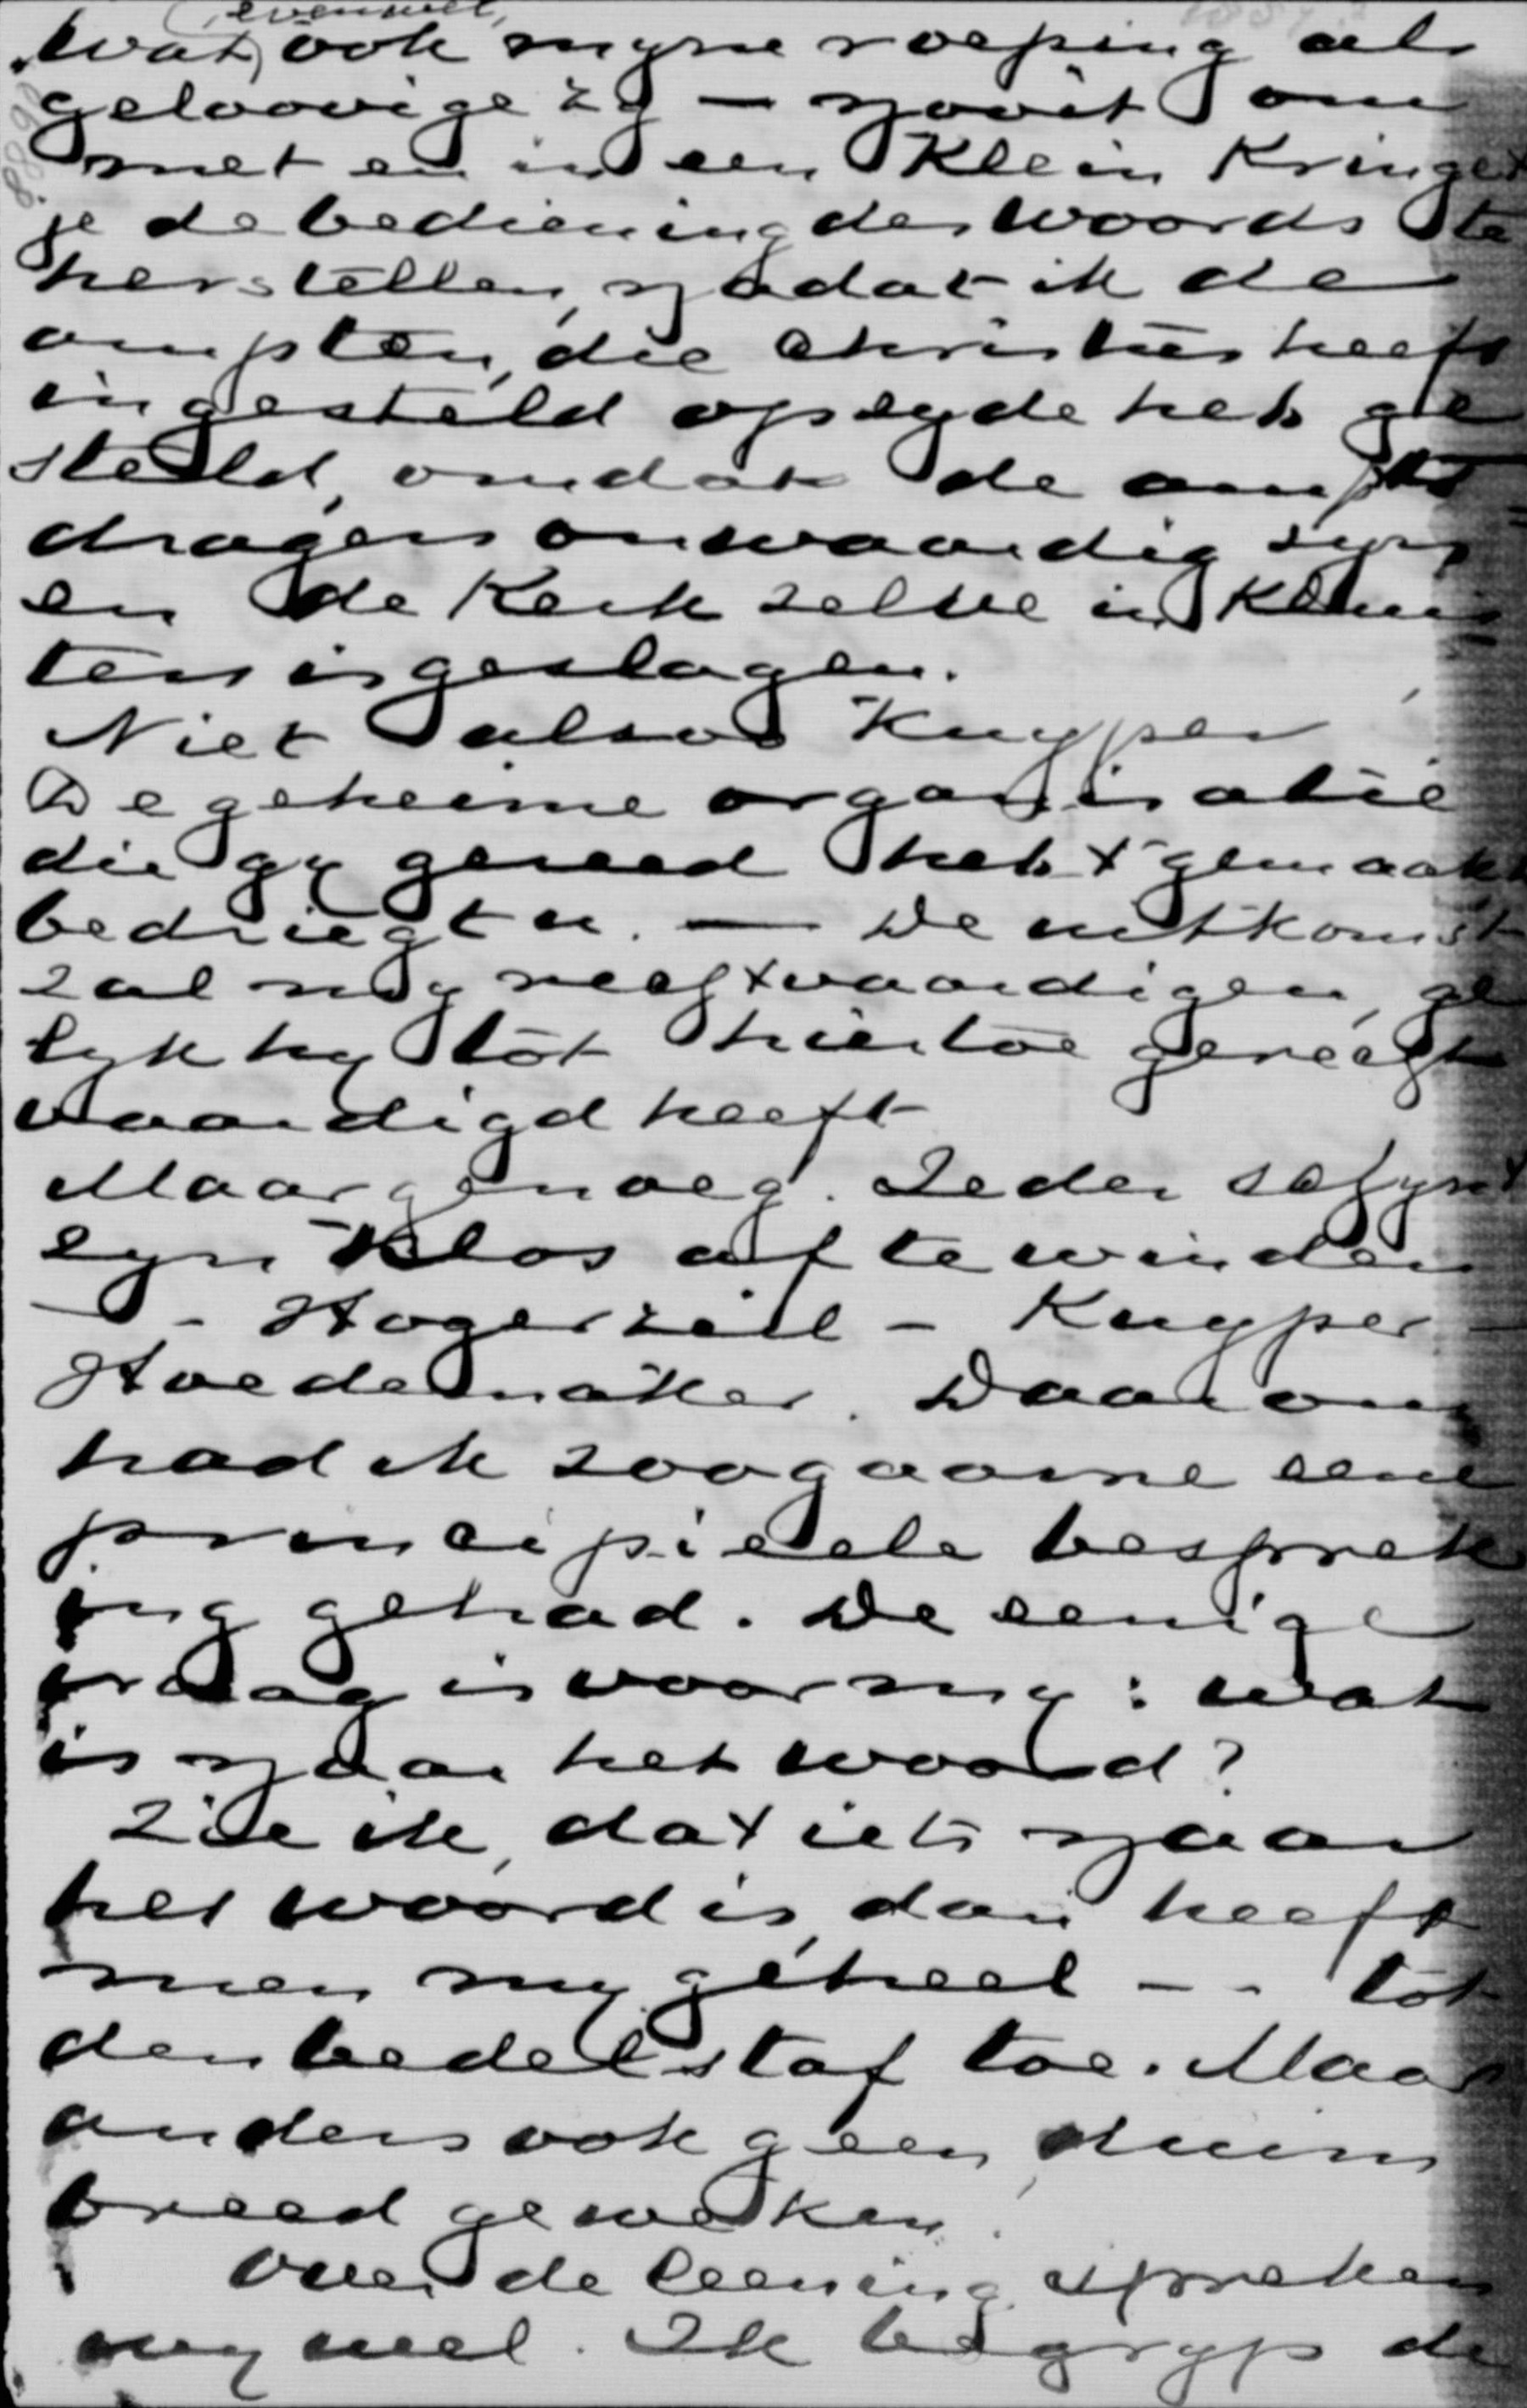 evenwel,
wat ook myne roeping als
geloovige zy — nooit om
met en in een klein kringet
je de bediening des woords te
herstellen, nadat ik de
ampten, die Christus heeft
ingesteld opzyde heb ge
steld, omdat de ampts
dragers onwaardig zyn
en de Kerk zelve in kluis
ters is geslagen.
Niet alzoo Kuyper
De geheime organisatie
die gy gereed hebt gemaakt
bedriegt u. — De uitkomst
zal my regtvaardigen, ge
lyk hy tot hiertoe geregt
vaardigd heeft
Maar genoeg. Ieder schynt
zyn klos af te winden
- Hogerzeil - Kuyper -
Hoedemaker. Daarom
had ik zoo gaarne eene
principieele besprek
ing gehad. De eenige
vraag is voor my: wat
is naar het woord?
Zie ik, dat iets naar
het woord is, dan heeft
men my geheel - - tot
den bedelstaf toe. Maar
anders ook geen duim
breed geweken.
Over de leening spreken
wy wel. Ik begryp de